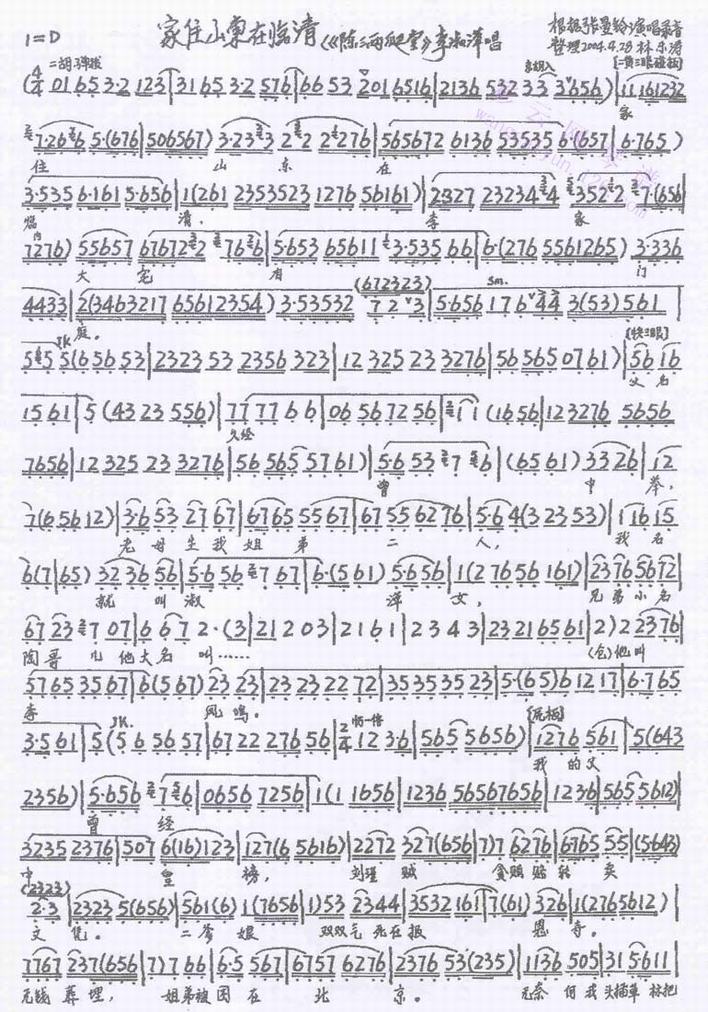 1=D 家住山东在临清 (《陈三两爬堂》李淑萍唱 根据张曼铃演唱录音
整理2004.4.28 林东涛
二胡弹拨 京胡入 [二黄三眼碰板]
(4/4 01653·2 123 | 31653·2 576 | 6653 2016516 | 2136 532 33 3656) | 11161232
家
7·2676 5·(676 | 506567) 3·233 22276 | 565672 6136 53535 6·(657 | 6·765 )
住 山 东 在
3·535 6·161 5·656 | 1(261 2353523 1276 56161) | 2327 232344 3522 7·(656
临 清, 李 家
7276) 55657 67672 2 7676 | 5·653 65611 3·535 66 | 6·(276 5561265) 3·336
大 宅 有 门
(672323) 5m.
4433 | 2(3463217 65612354) 3·53532 723 | 5·656 176 44 3(53)561
庭。
JK [快三眼]
555(65653 | 2323 53 2356 323 | 12 325 23 3276 | 56 565 0761) | 56 16
父 名
1561 | 5(43 23 556) | 77 77 66 | 06 56 72 56 | 11(1656 | 12 3276 5656
久经
7656 | 12 325 23 3276 | 56 565 5761) | 5·6 53 7 6 | (6561)3326 | 12
曾 中 举,
7(6512) | 3·653 2767 | 6765 5567 | 67 55 6276 | 5·64(32353) | 1615
老母生我姐弟 二 人, 我名
6(7|65) 32 36 56 | 5·6 56 7 67 | 6·(561) 5·656 | 1(27656 161) | 23765672
就叫淑 萍 女, 兄弟小名
67 23 7 07 | 6 6 7 2·(3 | 21203 | 2161 | 2343 | 23216561 | 2)22376
陶哥儿他大名叫…… (仓)他叫
57653567 | 6(567)23 23 | 23 23 22 72 | 35353523 | 5·(65)61217 | 6·765
李 凤鸣。
JK. 怕一倍 [流板]
3·561 | 5(565657 | 6722 27656 | 2/4 123·6 | 565 5656) | 1276 561 | 5(643
我 的父
2356) | 5·656 7 6 | 0656 7256 | 1(11656 | 1236 56567656 | 123·6 | 5655612)
曾 经
3235 2376 | 507 6(16)123 | 127(65616) | 2272 327(656 | 7)76276 | 676555 | (5643)
中 皇 榜, 刘瑾贼 贪赃赂转卖
(2323)
2·3 | 2323 5(656) | 561(6)1(7656 | 1)53 2344 | 3532161 | 7(61)326 | 1(2765612)
文凭。 二爹娘 双双气死在报 恩寺。
7767 237(656 | 7)766 | 6·5567 | 6757 6276 | 2376 53(235) | 1136 505 | 315·611
无钱葬埋, 姐弟被困在 北 京。 无奈何我头插草标把